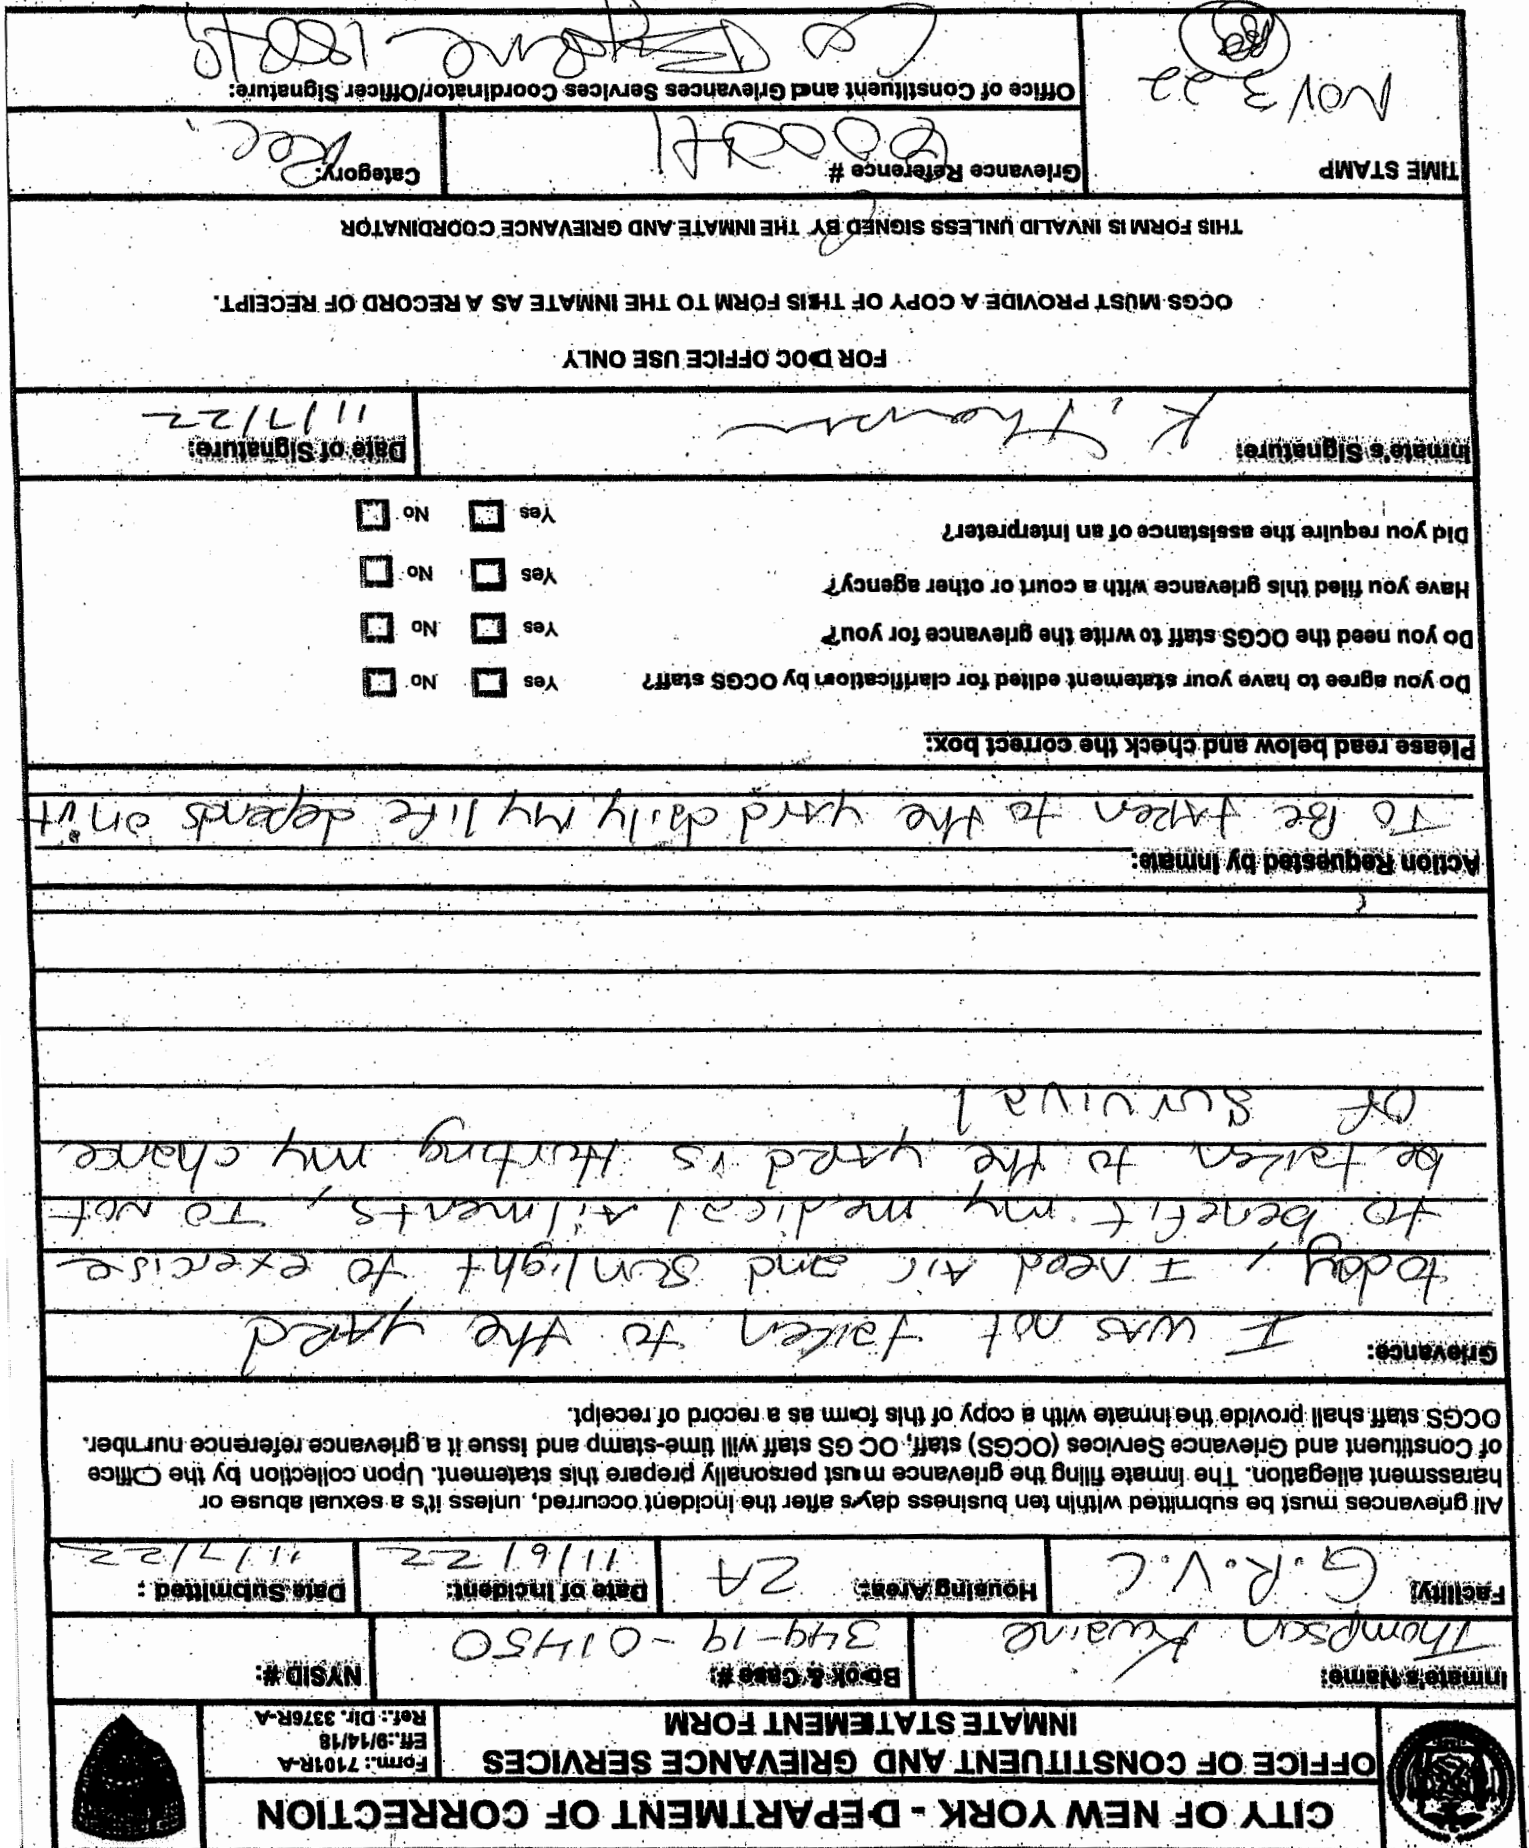 CITY OF NEW YORK - DEPARTMENT OF CORRECTION
OFFICE OF CONSTITUENT AND GRIEVANCE SERVICES
INMATE STATEMENT FORM
Form.: 7101R-A
Eff.:9/14/18
Ref.: Dir. 3376R-A
Inmate's Name:
Thompson Kwaine
Book & Case #:
349-19-01450
NYSID #:
Facility:
G.R.V.C
Housing Area:
2A
Date of Incident:
11/6/22
Date Submitted :
11/7/22
All grievances must be submitted within ten business days after the incident occurred, unless it's a sexual abuse or
harassment allegation. The inmate filing the grievance must personally prepare this statement. Upon collection by the Office
of Constituent and Grievance Services (OCGS) staff, OC GS staff will time-stamp and issue it a grievance reference number.
OCGS staff shall provide the inmate with a copy of this form as a record of receipt.
Grievance: I was not taken to the yard
today, I need Air and sunlight to exercise
to benefit my medical Ailments, To not
be taken to the yard is Hurting my chance
of survival
Action Requested by Inmate:
To Be taken to the yard daily My life depends on it
Please read below and check the correct box:
Do you agree to have your statement edited for clarification by OCGS staff? Yes No
Do you need the OCGS staff to write the grievance for you? Yes No
Have you filed this grievance with a court or other agency? Yes No
Did you require the assistance of an interpreter? Yes No
Inmate's Signature: K. Thompson
Date of Signature:
11/7/22
FOR DOC OFFICE USE ONLY
OCGS MUST PROVIDE A COPY OF THIS FORM TO THE INMATE AS A RECORD OF RECEIPT.
THIS FORM IS INVALID UNLESS SIGNED BY THE INMATE AND GRIEVANCE COORDINATOR
TIME STAMP
NOV 3 22
Grievance Reference #
Category:
Rec.
Office of Constituent and Grievances Services Coordinator/Officer Signature:
Co